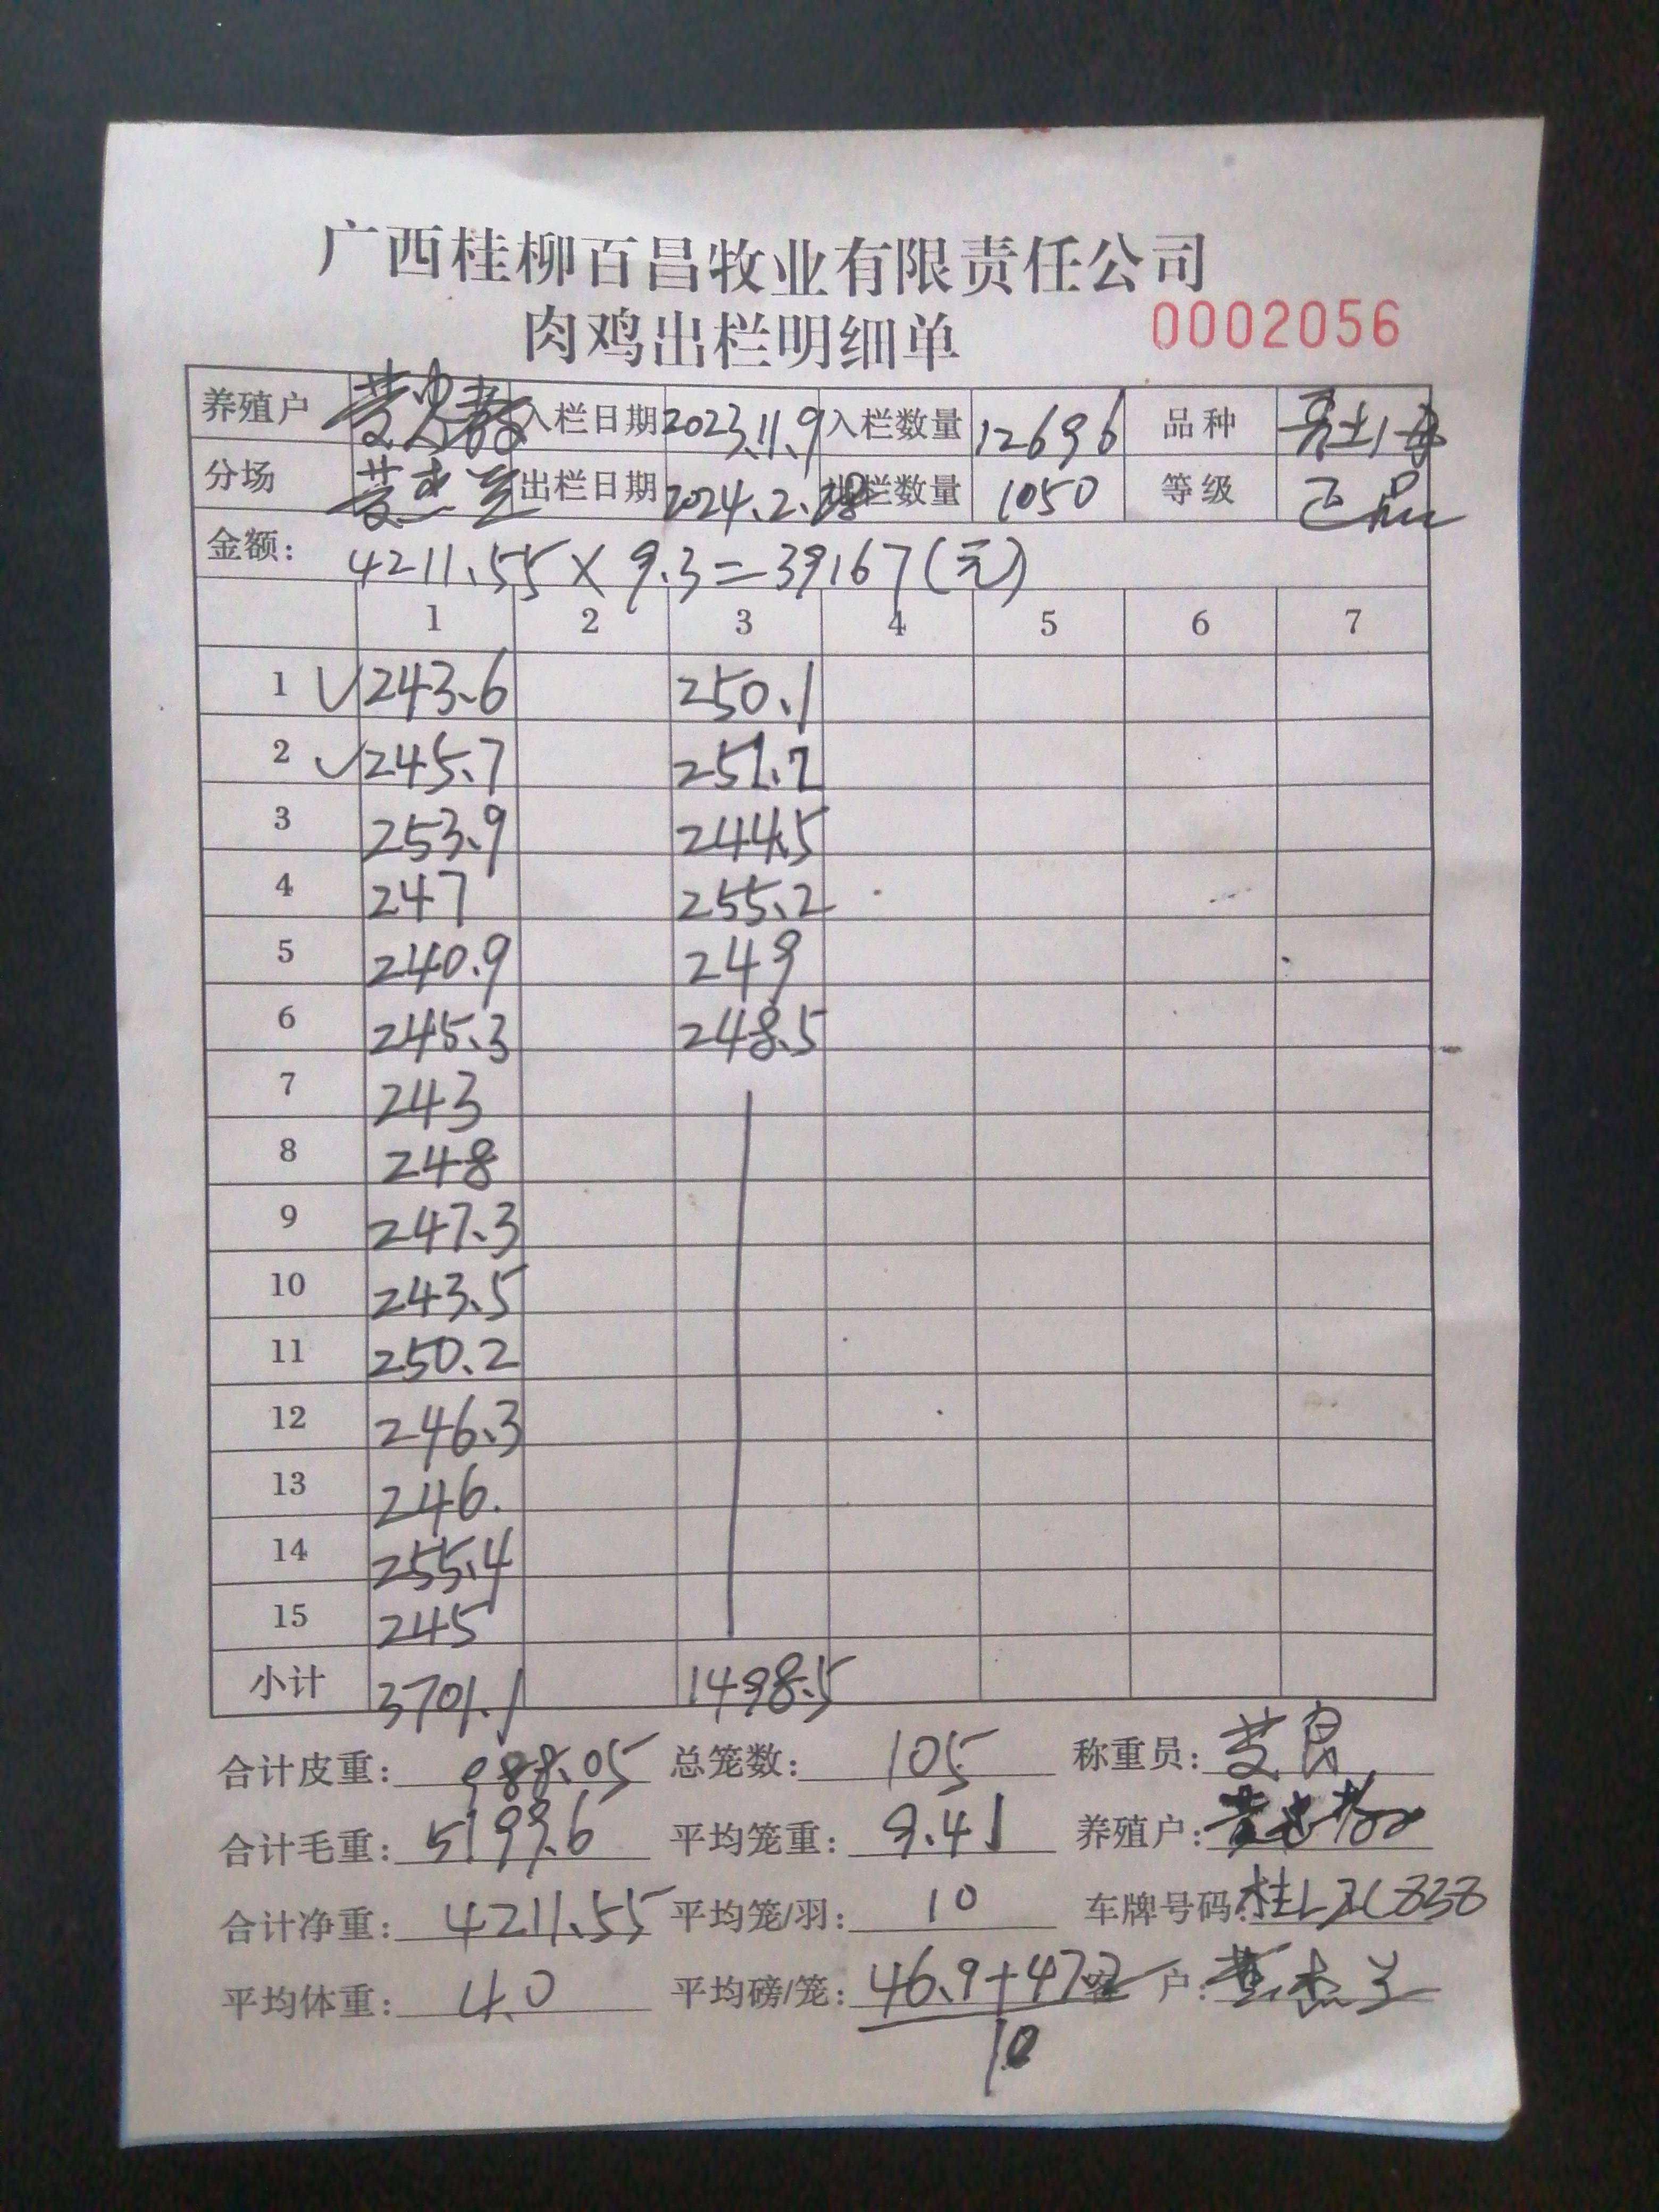 广西桂柳百昌牧业有限责任公司
肉鸡出栏明细单 0002056
养殖户 入栏日期 2023.11.9 入栏数量 12696 品种
分场 出栏日期 2024.2.28 出栏数量 1050 等级 正品
金额: 4211.55×9.3=39167(元)
1 2 3 4 5 6 7
1 √243.6 250.1
2 √245.7 251.2
3 253.9 244.5
4 247 255.2
5 240.9 249
6 245.3 248.5
7 243
8 248
9 247.3
10 243.5
11 250.2
12 246.3
13 246.
14 255.4
15 245
小计 3701.1 1498.5
合计皮重: 988.05 总笼数: 105 称重员:
合计毛重: 5199.6 平均笼重: 9.41 养殖户:
合计净重: 4211.55 平均笼/羽: 10 车牌号码:
平均体重: 4.0 平均磅/笼: 46.9+47.2 客户:
10